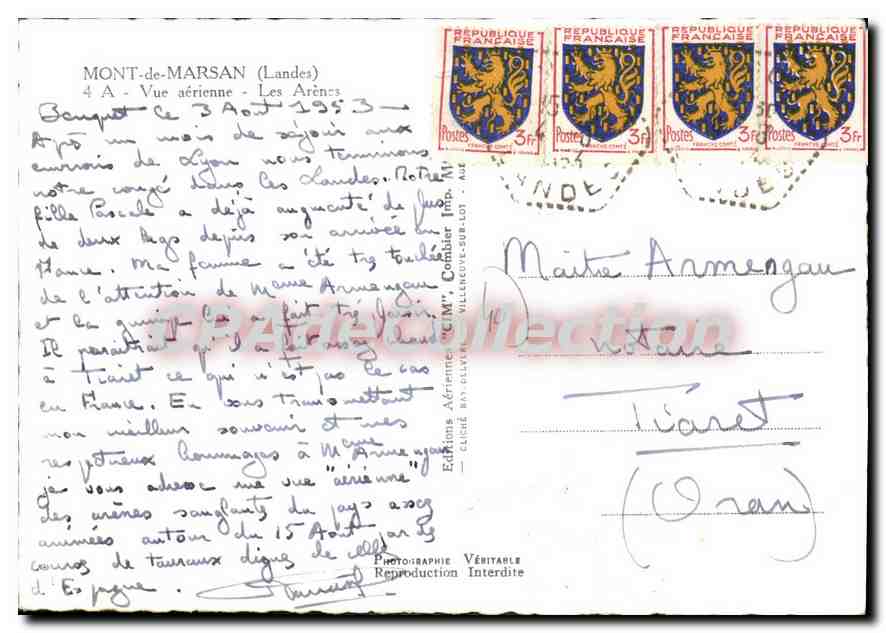 MONT-de-MARSAN (Landes)
4 A - Vue aérienne - Les Arènes
Bouguet le 3 Aout 1953 -
Après un mois de séjour aux
environs de Lyon nous terminons
notre congé dans les Landes. Notre
fille Pascale a déjà augmenté de plus
de deux kgs depuis son arrivée en
France. Ma femme a été très touchée
de l'attention de Mame Armengau
et la guimpe lui a fait très plaisir.
Il paraitrait qu'il a fait assez chaud
à Tiaret ce qui n'est pas le cas
en France. En vous transmettant
mon meilleur souvenir et mes
respectueux hommages à Mame Armengau
je vous adresse une vue "aérienne"
des arènes sanglantes du pays assez
animées autour du 15 Aout par des
courses de taureaux dignes de celles
d'Espagne.
Editions Aériennes "CIM" Combier Imp.
CLICHÉ RAY-DELVERT VILLENEUVE-SUR-LOT
PHOTOGRAPHIE VÉRITABLE
Reproduction Interdite
RÉPUBLIQUE FRANÇAISE
Postes 3Fr
FRANCHE-COMTÉ
RÉPUBLIQUE FRANÇAISE
Postes 3Fr
FRANCHE-COMTÉ
RÉPUBLIQUE FRANÇAISE
Postes 3Fr
FRANCHE-COMTÉ
RÉPUBLIQUE FRANÇAISE
Postes 3Fr
FRANCHE-COMTÉ
Maître Armengau
notaire
Tiaret
(Oran)
CPAdeCollection